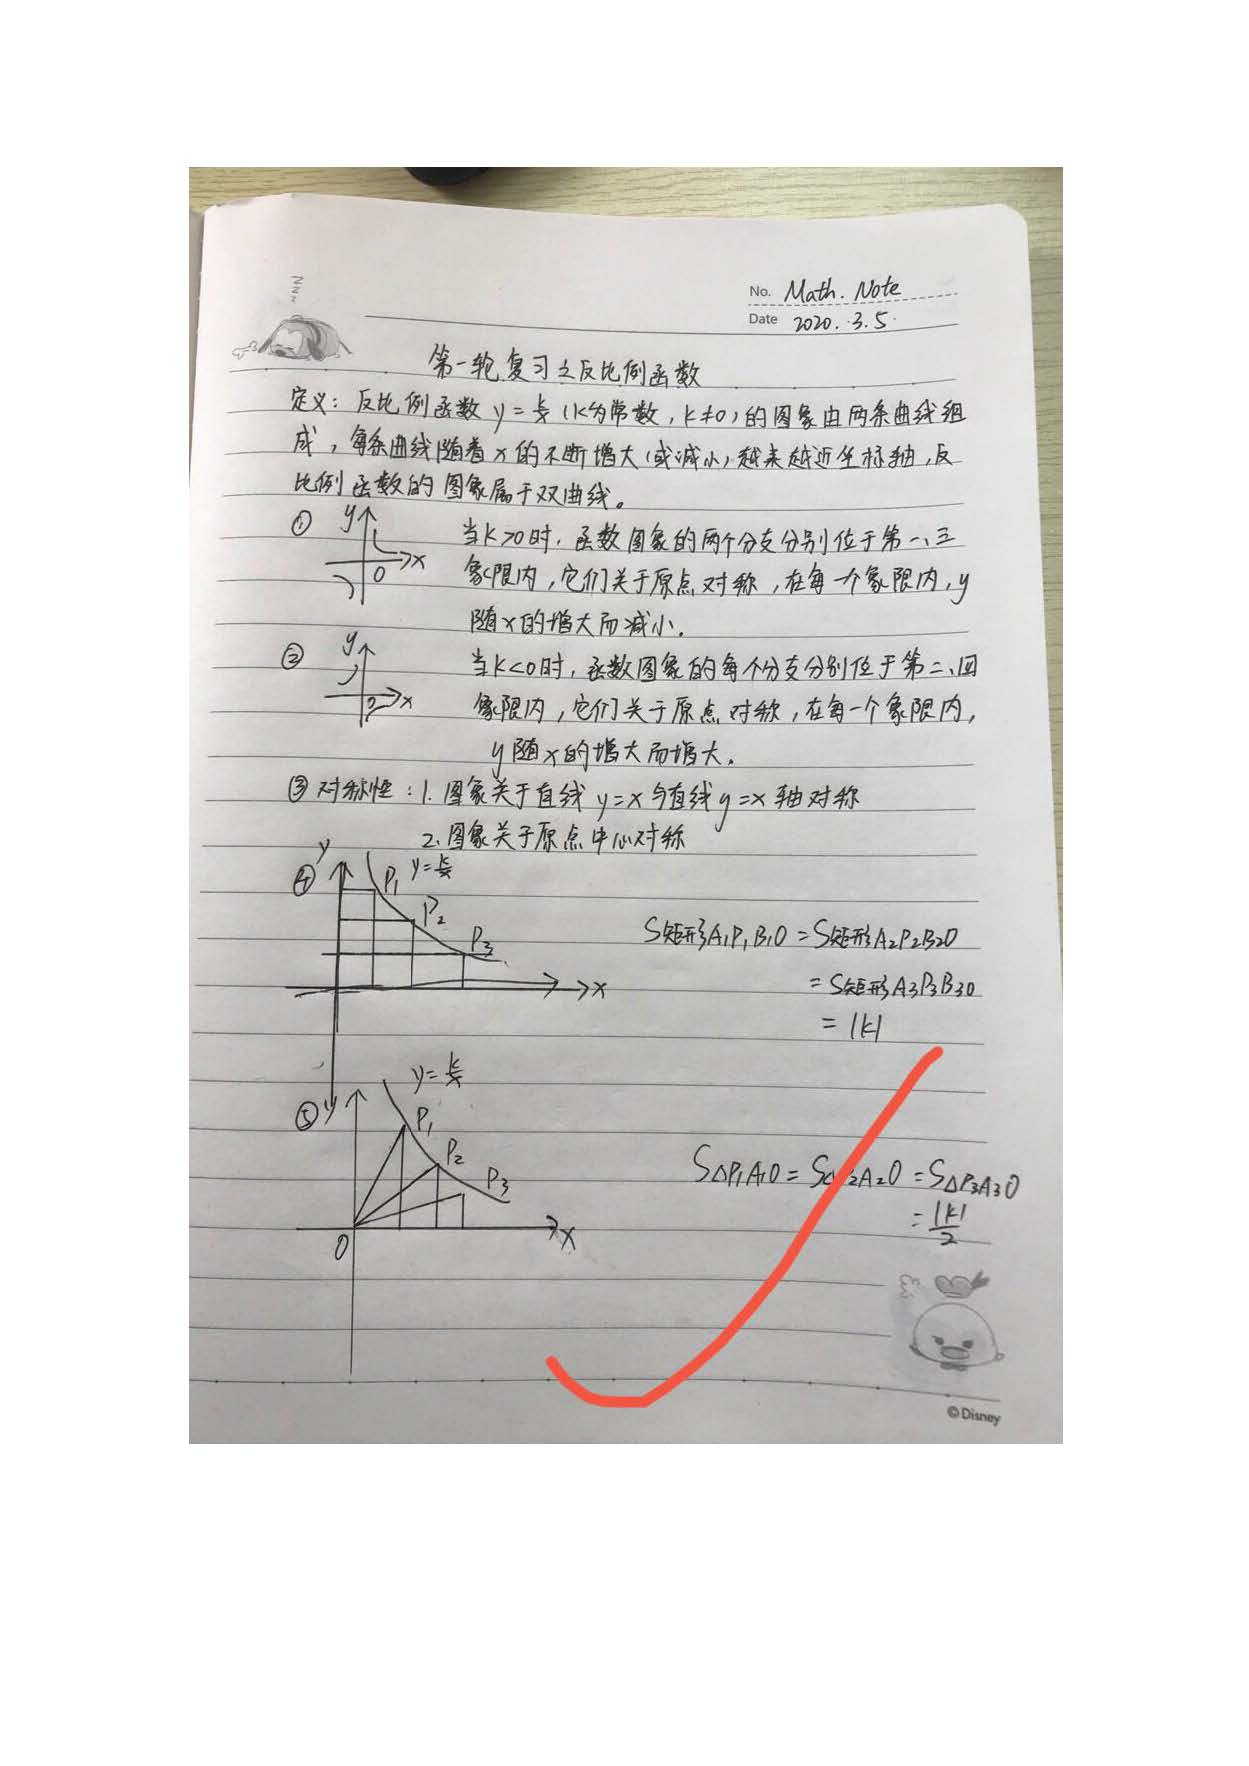 No. Math. Note
Date 2020.3.5.
第一轮复习之反比例函数
定义：反比例函数 y=k/x (k为常数，k≠0)的图象由两条曲线组
成，每条曲线随着x的不断增大(或减小)越来越近坐标轴，反
比例函数的图象属于双曲线。
① y x O
当k>0时，函数图象的两个分支分别位于第一、三
象限内，它们关于原点对称，在每一个象限内，y
随x的增大而减小.
② y x O
当k<0时，函数图象的每个分支分别位于第二、四
象限内，它们关于原点对称，在每一个象限内，
y随x的增大而增大.
③对称性：1.图象关于直线y=x与直线y=x轴对称
2.图象关于原点中心对称
④ y y=k/x P1 P2 P3 x
S矩形A1P1B1O=S矩形A2P2B2O
=S矩形A3P3B3O
=|k|
⑤ y y=k/x P1 P2 P3 O x
S△P1A1O=S△P2A2O=S△P3A3O
=|k|/2
©Disney